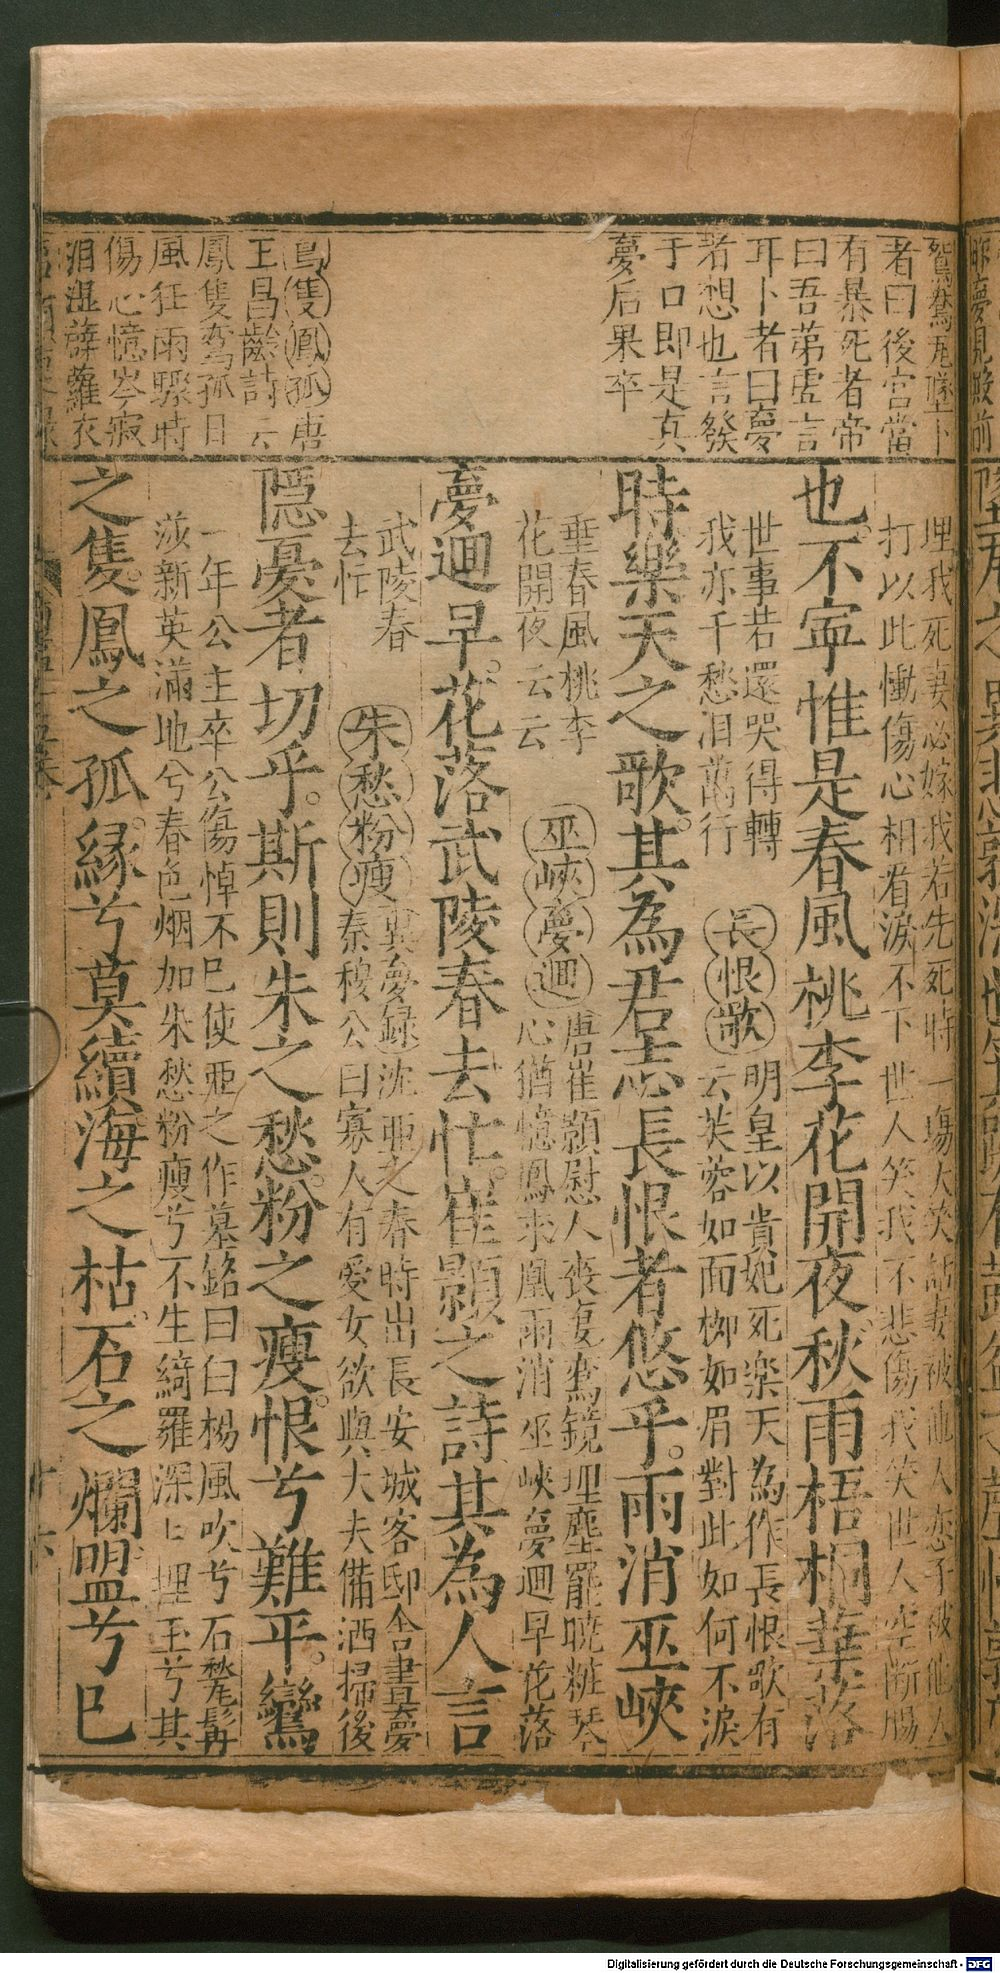 鴛鴦瓦墜卜
者曰後宮當
有暴死者帝
曰吾弟虛言
耳卜者曰夢
者想也言發
于口即是真
夢后果卒
鸞隻鳳孤唐
王昌齡詩云
鳳隻鸞孤日
風狂雨驟時
傷心憶岑寂
泪濕薜蘿衣
埋我死妻必嫁我若先死時一場大笑話妻被他人恋子被他人
打以此慟傷心相看淚不下世人笑我不悲傷我笑世人空断腸
也不寧惟是春風桃李花開夜秋雨梧桐葉落
世事若還哭得轉
我亦千愁泪萬行
長恨歌
明皇以貴妃死楽天為作長恨歌有
云芙蓉如面柳如眉對此如何不淚
時樂天之歌其為君志長恨者悠乎雨消巫峽
垂春風桃李
花開夜云云
巫峽夢迴
唐崔顥慰人喪復鸞鏡埋塵罷曉粧琴
心猶憶鳳求凰雨消巫峽夢迴早花落
夢迴早花落武陵春去忙崔顥之詩其為人言
武陵春
去忙
朱愁粉瘦
異夢録沈亜之春時出長安城客邸舎晝夢
秦穆公曰寡人有愛女欲與大夫備洒掃後
隠憂者切乎斯則朱之愁粉之瘦恨兮難平鸞
一年公主卒公傷悼不已使亜之作墓銘曰白楊風吹兮石甃髯
莎新英滿地兮春色烟加朱愁粉瘦兮不生綺羅深土埋玉兮其
之隻鳳之孤縁兮莫續海之枯石之爛盟兮已
Digitalisierung gefördert durch die Deutsche Forschungsgemeinschaft - DFG